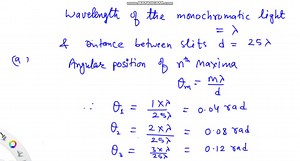 Wavelength of the monochromatic light
= λ
& distance between slits d = 25λ
(a) Angular position of nth maxima
θm = mλ/d
∴ θ1 = 1×λ/25λ = 0.04 rad
θ2 = 2×λ/25λ = 0.08 rad
θ3 = 3×λ/25λ = 0.12 rad